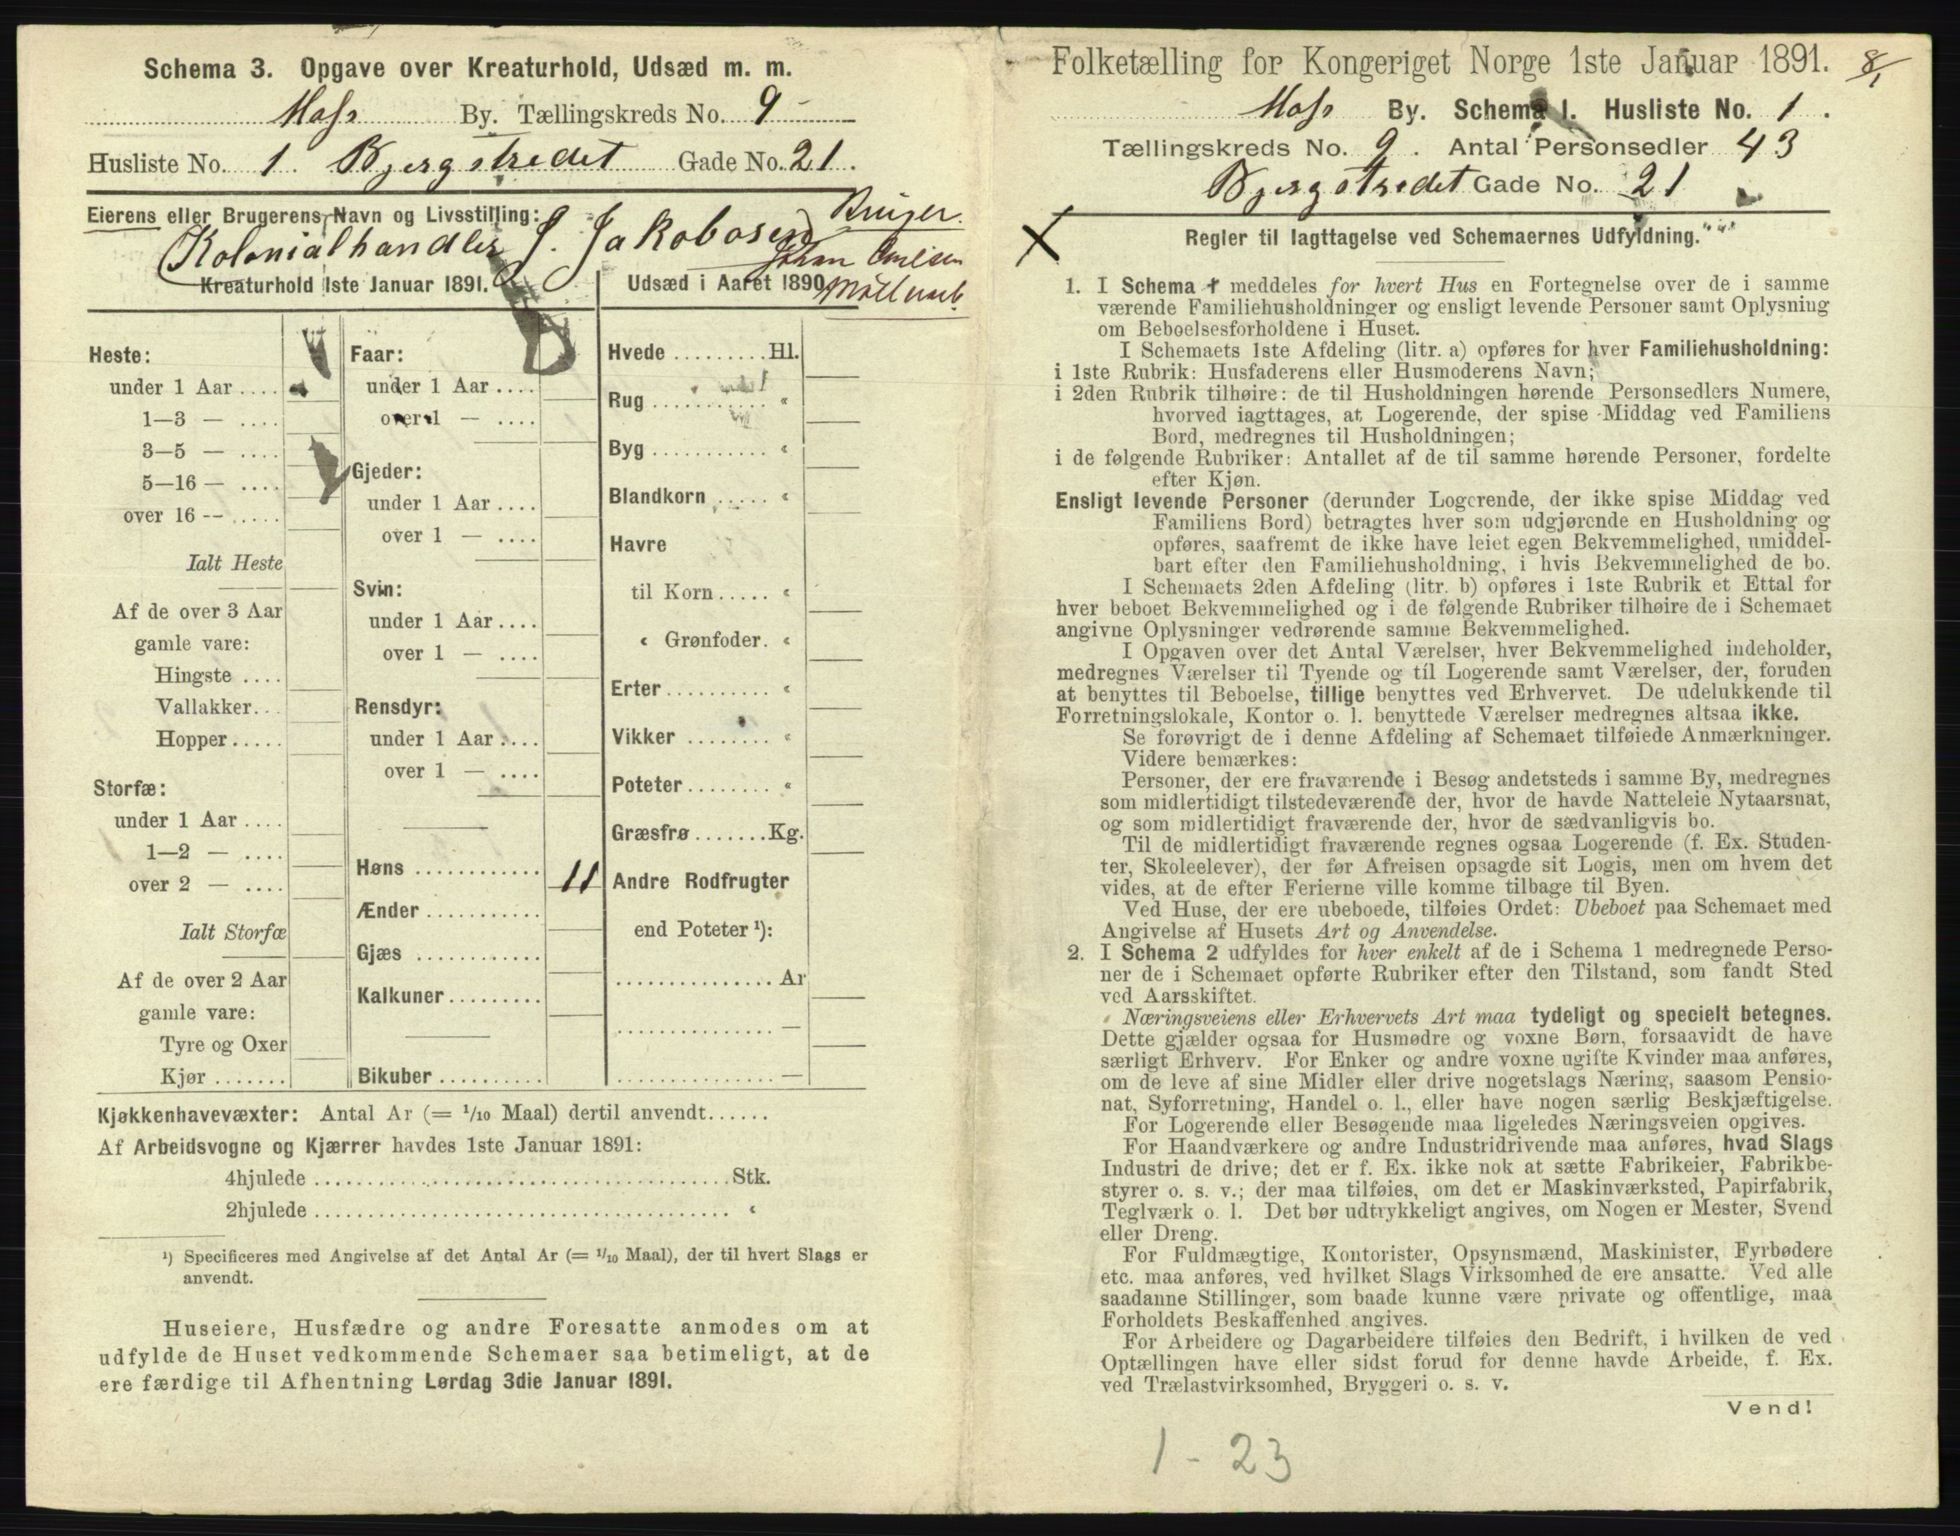 Schema 3. Opgave over Kreaturhold, Udsæd m. m.
Moss By. Tællingskreds No. 9
Husliste No. 1. Bjergstredet Gade No. 21.
Eierens eller Brugerens Navn og Livsstilling: Bruger
Kolonialhandler J. Jakobosen
Kreaturhold 1ste Januar 1891.
Udsæd i Aaret 1890
Heste:
under 1 Aar ....
1—3 — ....
3—5 — ....
5—16 — ....
over 16 — .....
Ialt Heste
Af de over 3 Aar
gamle vare:
Hingste ....
Vallakker...
Hopper.....
Storfæ:
under 1 Aar ....
1—2 — ....
over 2 — ....
Ialt Storfæ
Af de over 2 Aar
gamle vare:
Tyre og Oxer
Kjør .......
Faar:
under 1 Aar ....
over 1 — ....
Gjeder:
under 1 Aar ....
over 1 — ....
Svin:
under 1 Aar ....
over 1 — ....
Rensdyr:
under 1 Aar ....
over 1 — ....
Høns ............ 11
Ænder ...........
Gjæs ............
Kalkuner .........
Bikuber ..........
Hvede .........Hl.
Rug ........... "
Byg ........... "
Blandkorn ..... "
Havre
til Korn..... "
" Grønfoder. "
Erter.......... "
Vikker ........ "
Poteter........ "
Græsfrø .......Kg.
Andre Rodfrugter
end Poteter ¹):
............... Ar
............... —
............... —
Kjøkkenhavevæxter: Antal Ar (= 1/10 Maal) dertil anvendt......
Af Arbeidsvogne og Kjærrer havdes 1ste Januar 1891:
4hjulede ........................................Stk.
2hjulede ........................................ "
¹) Specificeres med Angivelse af det Antal Ar (= 1/10 Maal), der til hvert Slags er
anvendt.
Huseiere, Husfædre og andre Foresatte anmodes om at
udfylde de Huset vedkommende Schemaer saa betimeligt, at de
ere færdige til Afhentning Lørdag 3die Januar 1891.
Folketælling for Kongeriget Norge 1ste Januar 1891. 8/1
Moss By. Schema 1. Husliste No. 1.
Tællingskreds No. 9. Antal Personsedler 43
Bjergstredet Gade No. 21
Regler til Iagttagelse ved Schemaernes Udfyldning.
1. I Schema 1 meddeles for hvert Hus en Fortegnelse over de i samme
værende Familiehusholdninger og ensligt levende Personer samt Oplysning
om Beboelsesforholdene i Huset.
I Schemaets 1ste Afdeling (litr. a) opføres for hver Familiehusholdning:
i 1ste Rubrik: Husfaderens eller Husmoderens Navn;
i 2den Rubrik tilhøire: de til Husholdningen hørende Personsedlers Numere,
hvorved iagttages, at Logerende, der spise Middag ved Familiens
Bord, medregnes til Husholdningen;
i de følgende Rubriker: Antallet af de til samme hørende Personer, fordelte
efter Kjøn.
Ensligt levende Personer (derunder Logerende, der ikke spise Middag ved
Familiens Bord) betragtes hver som udgjørende en Husholdning og
opføres, saafremt de ikke have leiet egen Bekvemmelighed, umiddel-
bart efter den Familiehusholdning, i hvis Bekvemmelighed de bo.
I Schemaets 2den Afdeling (litr. b) opføres i 1ste Rubrik et Ettal for
hver beboet Bekvemmelighed og i de følgende Rubriker tilhøire de i Schemaet
angivne Oplysninger vedrørende samme Bekvemmelighed.
I Opgaven over det Antal Værelser, hver Bekvemmelighed indeholder,
medregnes Værelser til Tyende og til Logerende samt Værelser, der, foruden
at benyttes til Beboelse, tillige benyttes ved Erhvervet. De udelukkende til
Forretningslokale, Kontor o. l. benyttede Værelser medregnes altsaa ikke.
Se forøvrigt de i denne Afdeling af Schemaet tilføiede Anmærkninger.
Videre bemærkes:
Personer, der ere fraværende i Besøg andetsteds i samme By, medregnes
som midlertidigt tilstedeværende der, hvor de havde Natteleie Nytaarsnat,
og som midlertidigt fraværende der, hvor de sædvanligvis bo.
Til de midlertidigt fraværende regnes ogsaa Logerende (f. Ex. Studen-
ter, Skoleelever), der før Afreisen opsagde sit Logis, men om hvem det
vides, at de efter Ferierne ville komme tilbage til Byen.
Ved Huse, der ere ubeboede, tilføies Ordet: Ubeboet paa Schemaet med
Angivelse af Husets Art og Anvendelse.
2. I Schema 2 udfyldes for hver enkelt af de i Schema 1 medregnede Perso-
ner de i Schemaet opførte Rubriker efter den Tilstand, som fandt Sted
ved Aarsskiftet.
Næringsveiens eller Erhvervets Art maa tydeligt og specielt betegnes.
Dette gjælder ogsaa for Husmødre og voxne Børn, forsaavidt de have
særligt Erhverv. For Enker og andre voxne ugifte Kvinder maa anføres,
om de leve af sine Midler eller drive nogetslags Næring, saasom Pensio-
nat, Syforretning, Handel o. l., eller have nogen særlig Beskjæftigelse.
For Logerende eller Besøgende maa ligeledes Næringsveien opgives.
For Haandværkere og andre Industridrivende maa anføres, hvad Slags
Industri de drive; det er f. Ex. ikke nok at sætte Fabrikeier, Fabrikbe-
styrer o. s. v.; der maa tilføies, om det er Maskinværksted, Papirfabrik,
Teglværk o. l. Det bør udtrykkeligt angives, om Nogen er Mester, Svend
eller Dreng.
For Fuldmægtige, Kontorister, Opsynsmænd, Maskinister, Fyrbødere
etc. maa anføres, ved hvilket Slags Virksomhed de ere ansatte. Ved alle
saadanne Stillinger, som baade kunne være private og offentlige, maa
Forholdets Beskaffenhed angives.
For Arbeidere og Dagarbeidere tilføies den Bedrift, i hvilken de ved
Optællingen have eller sidst forud for denne havde Arbeide, f. Ex.
ved Trælastvirksomhed, Bryggeri o. s. v.
Vend!
1 - 23